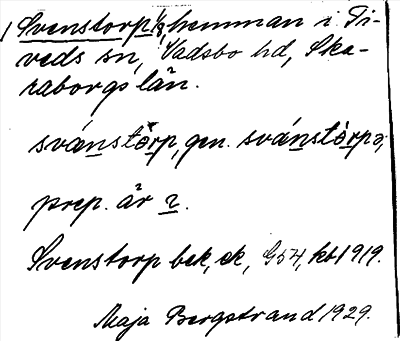 1 Svenstorp 1/8, hemman i Ti-
veds sn, Vadsbo hd, Ska-
raborgs län.
svánstòrp, gen. svánstòrpə;
prep. är 2.
Svenstorp bek, ek, G54, kb 1919.
Maja Bergstrand 1929.